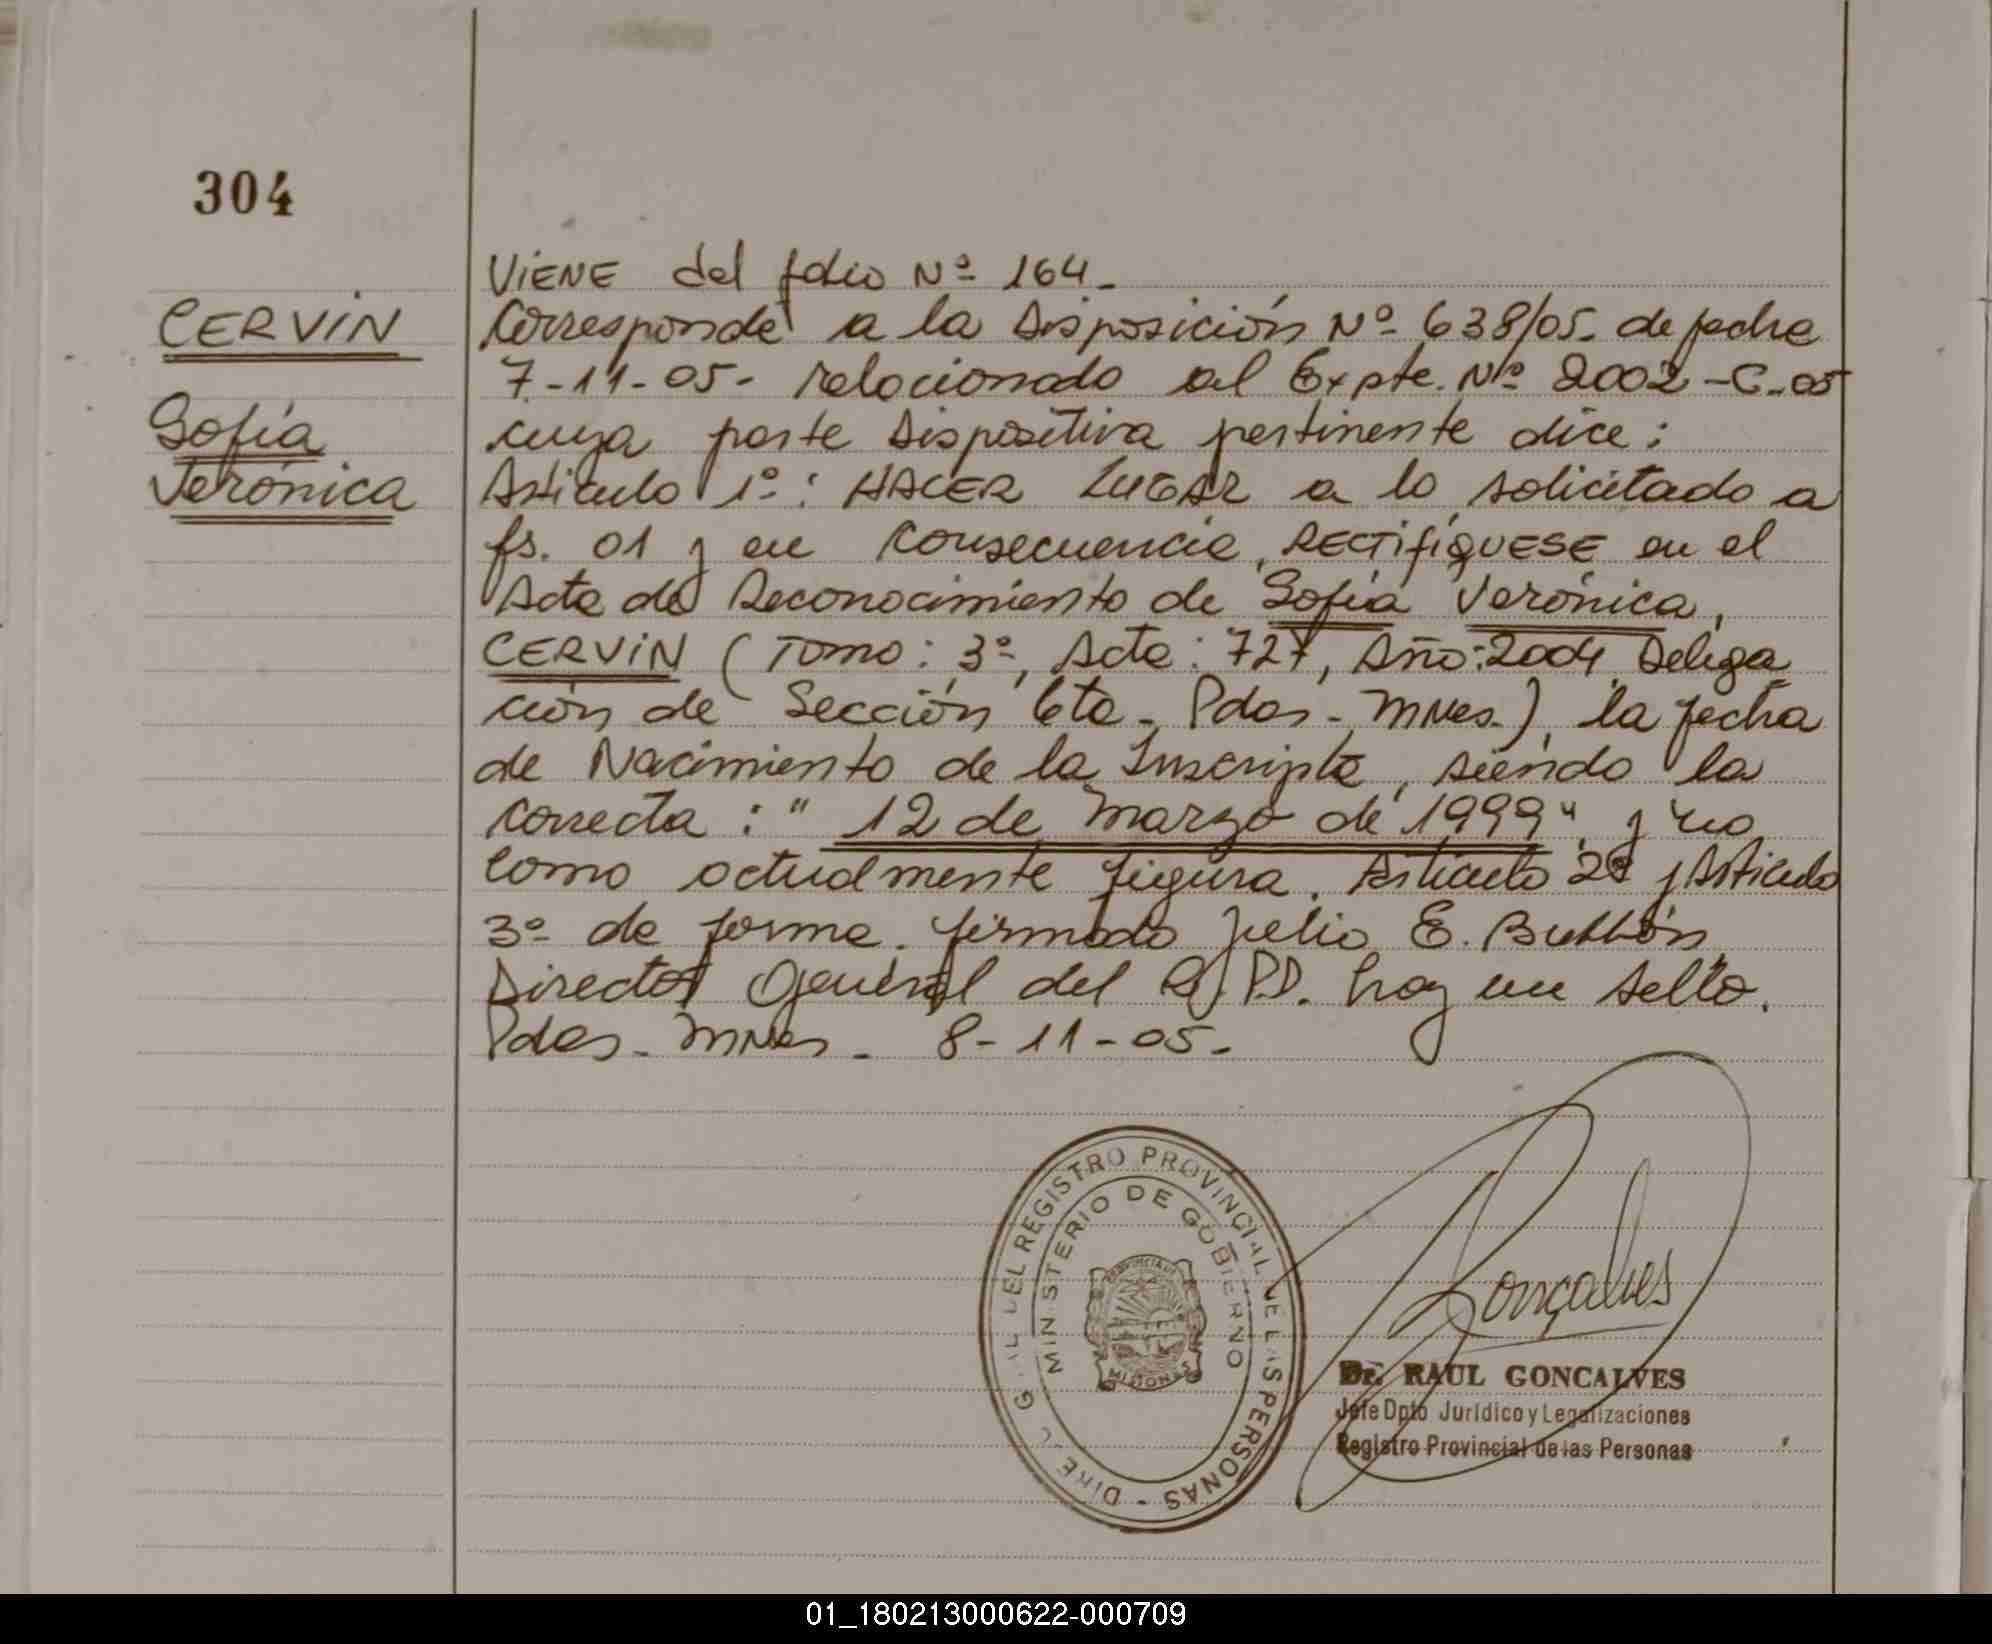 304
CERVIN
Sofía
Verónica
VIENE del folio Nº 164-
Corresponde a la Disposición Nº 638/05- de fecha
7-11-05- relacionado al Expte. Nº 2002-C-05
cuya parte Dispositiva pertinente dice:
Artículo 1º: HACER LUGAR a lo solicitado a
fs. 01 y en Consecuencia, RECTIFIQUESE en el
Acta de Reconocimiento de Sofía Verónica,
CERVIN (Tomo: 3º, Acta: 727, Año: 2004 Delega
ción de Sección 6ta- Pdas- MNes.), la fecha
de Nacimiento de la Inscripta, siendo la
correcta: "12 de Marzo de 1999" y no
como actualmente figura. Artículo 2º y Artículo
3º de forma. firmado Julio E.
Director General del R.P.P. hay un sello.
Pdas- MNes- 8-11-05-
DIREC. GRAL DEL REGISTRO PROVINCIAL DE LAS PERSONAS -
MINISTERIO DE GOBIERNO
PROVINCIA DE
MISIONES
Gonçalves
Dr. RAUL GONCALVES
Jefe Dpto Jurídico y Legalizaciones
Registro Provincial de las Personas
01_180213000622-000709